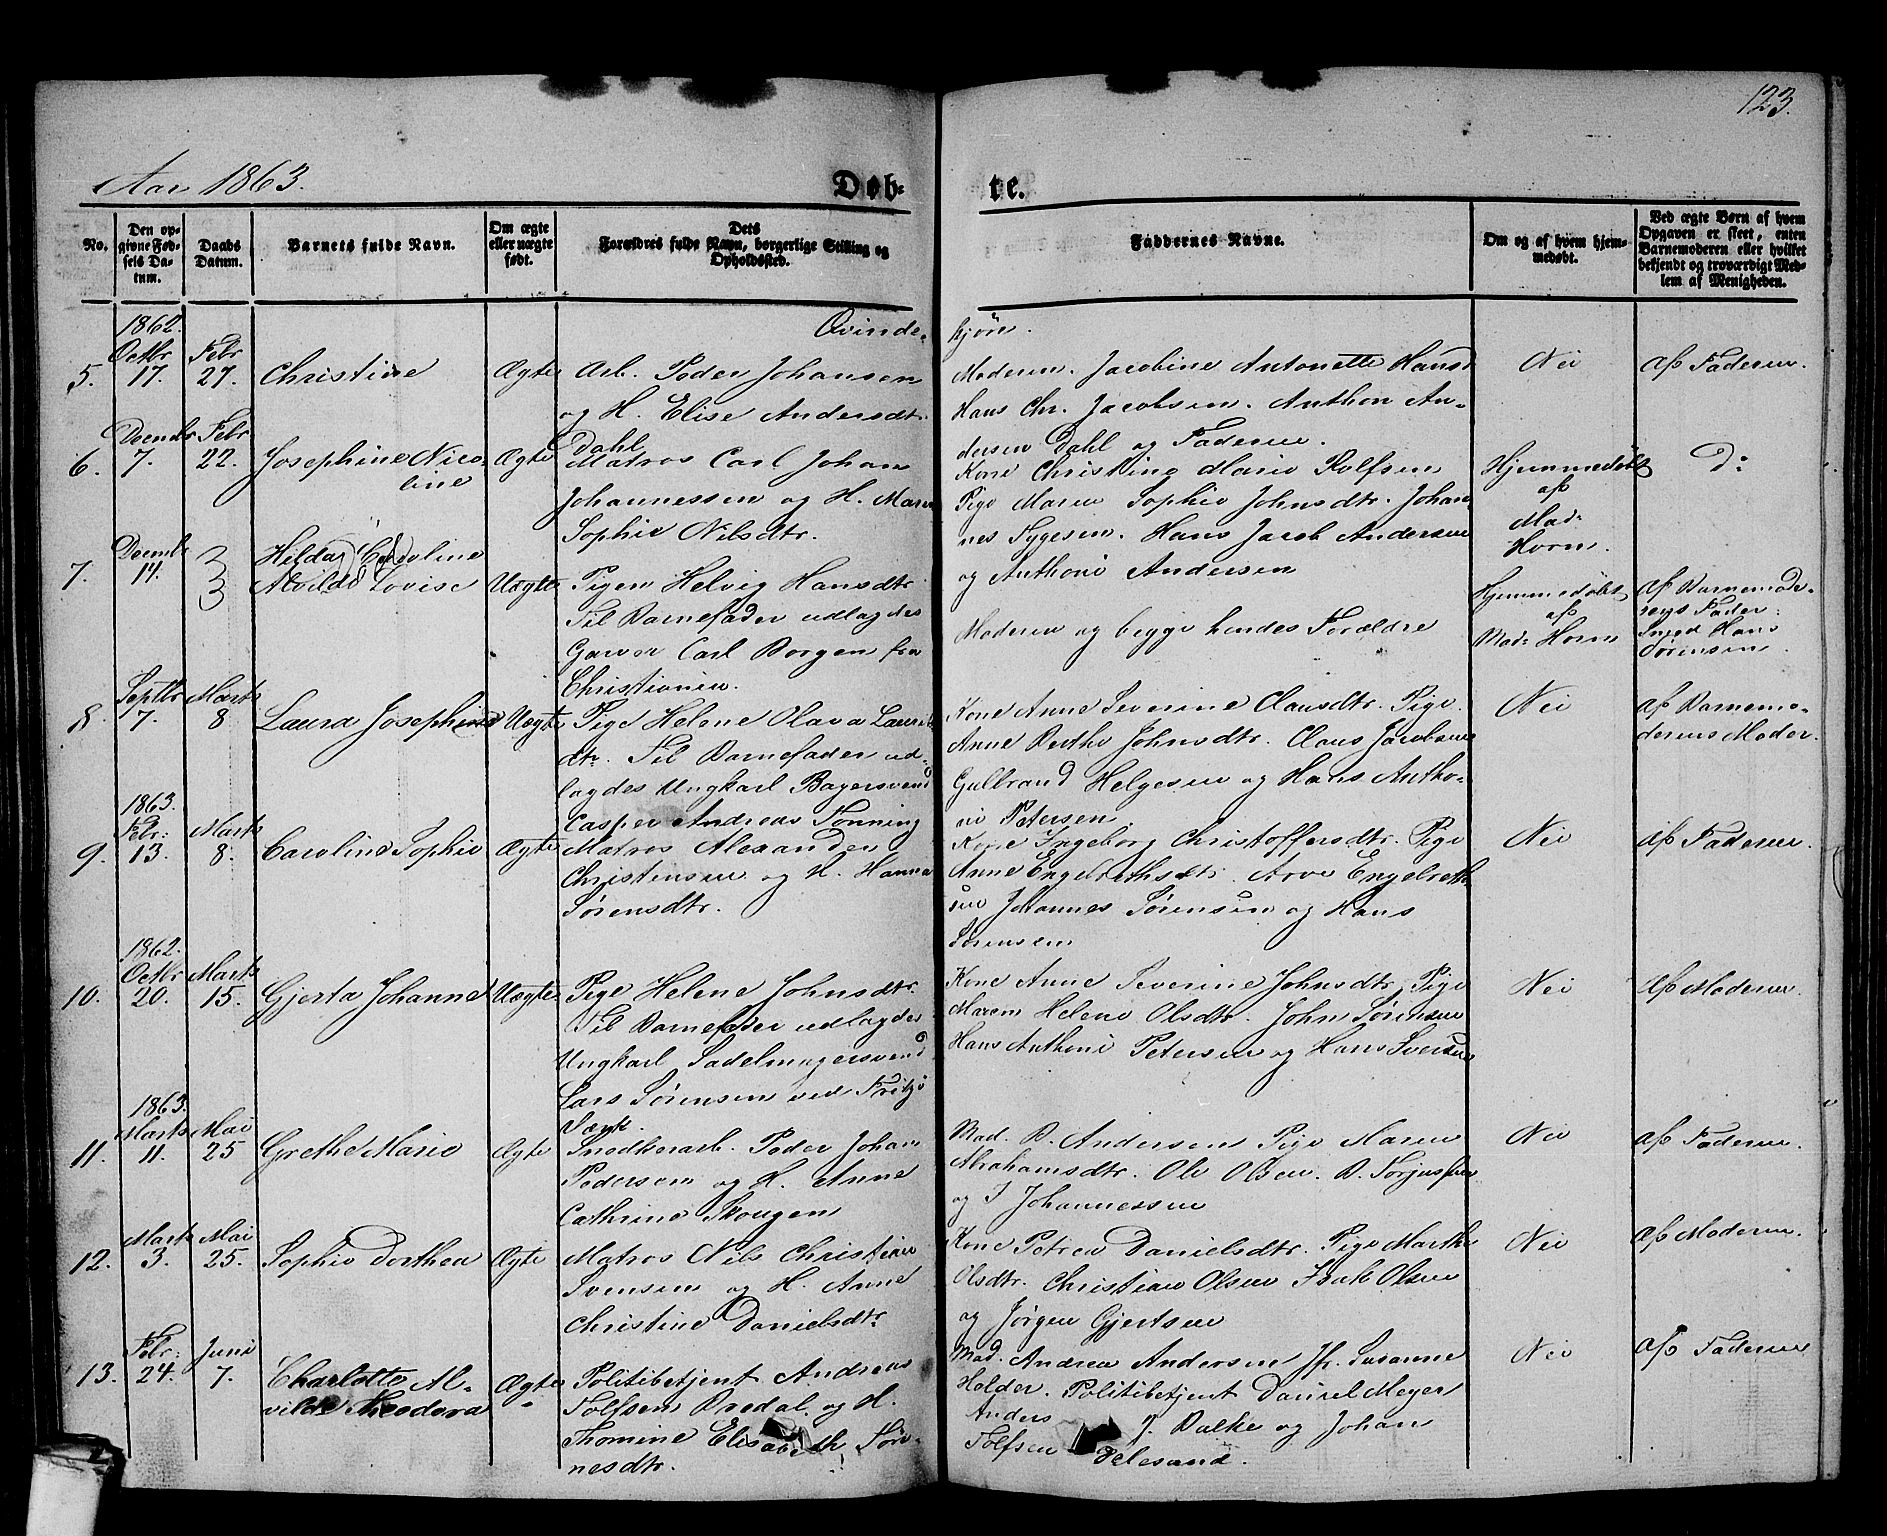 123.
Aar 1863.
Døb-
te.
No.
Den op-
givne Fød-
sels Da-
tum.
Daabs
Datum.
Barnets fulde Navn.
Om ægte
eller uægte
født.
Dets
Forældres fulde Navn, borgerlige Stilling og
Opholdssted.
Faddernes Navne.
Om og af hvem hjem-
medøbt.
Ved ægte Børn af hvem
Opgaven er skeet, enten
Barnemoderen eller hvilket
bekjendt og troværdigt Med-
lem af Menigheden.
Qvinde-
kjøn.
5.
1862.
Octbr
17.
Febr
27.
Christine
Ægte
Arb. Peder Johansen
og H. Elise Andersdtr.
Dahl
Moderen. Jacobine Antonette Hansd
Hans Chr. Jacobsen. Anthon An-
dersen Dahl og Faderen.
Nei
af Faderen.
6.
Decmbr
7.
Febr
22.
Josephine Nico-
line
Ægte
Matros Carl Johan
Johannessen og H. Maren
Sophie Nilsdtr.
Kone Christine Marie Rolfsen
Pige Maren Sophie Johnsdtr. Johan-
nes Sygesen. Hans Jacob Andersen
og Anthoni Andersen
Hjemmedøbt
af
Mad:
Horn.
D:
7.
Decmbr
14.
3
3
Hilda Caroline
Alvilde Lovise
Uægte
Pigen Helvig Hansdtr
Til Barnefader udlagdes
Garver Carl Borgen fra
Christiania.
Moderen og begge hendes Forældre
Hjemmedøbt
af
Mad: Horn
af Barnemode-
rens Fader:
Hans
Sørensen.
8.
Septbr
7.
Marts
8
Laura Josephine
Uægte
Pige Helene Olava Laurits
dtr. Til Barnefader ud-
lagdes Ungkarl Bagersvend
Casper Andreas Tønning
Kone Anne Severine Clausdtr. Pige
Anne Berthe Johnsdtr. Claus Jacobsen
Gulbrand Helgesen og Hans Antho-
ni Petersen
Nei
af Barnemo-
derens Moder.
9.
1863.
Febr:
13.
Marts
8.
Caroline Sophie
Ægte
Matros Alexander
Christensen og H. Hanna
Sørensdtr.
Kone Ingeborg Christoffersdtr. Pige
Anne Engebrethsdtr. Arve Engebreth-
sen Johannes Sørensen og Hans
Sørensen
Nei
af Faderen.
10.
1862.
Octbr
20.
Marts
15.
Gjerta Johanne
Uægte
Pige Helene Johnsdtr.
Til Barnefader udlagdes
Ungkarl Sadelmagersvend
Lars Sørensen ved Fritzø
Værk.
Kone Anne Severine Johnsdtr. Pige
Maren Helene Olsdtr. John Sørensen
Hans Anthoni Petersen og Hans Iversen
Nei
af Moderen.
11.
1863.
Marts
11.
Mai
25
Grethe Marie
Ægte
Snedkerarb. Peder Johan
Pedersen og H. Anne
Cathrine Skougen
Mad. B. Andersen Pige Maren
Abrahamsdtr. Ole Olsen. B. Torjussen
og I Johannessen
Nei
af Faderen.
12.
Marts
3.
Mai
25.
Sophie Dorthea
Ægte
Matros Nils Christian
Svensen og H. Anne
Christine Danielsdtr
Kone Petrea Danielsdtr. Pige Marthe
Olsdtr. Christian Olsen Isak Olsen
og Jørgen Gjertsen
Nei
af Moderen.
13.
Febr:
24.
Juni
7.
Charlotte Al-
vilde Theodora
Ægte
Politibetjent Andreas
Tolfsen Bredal. og H.
Thomine Elisabeth Jør-
nesdtr.
Mad. Andrea Andersen Jfr. Susanne
Holder. Politibetjent Daniel Meyer
Anders
Tolfsen J. Balke og Johan
Delesand.
Nei
af Faderen